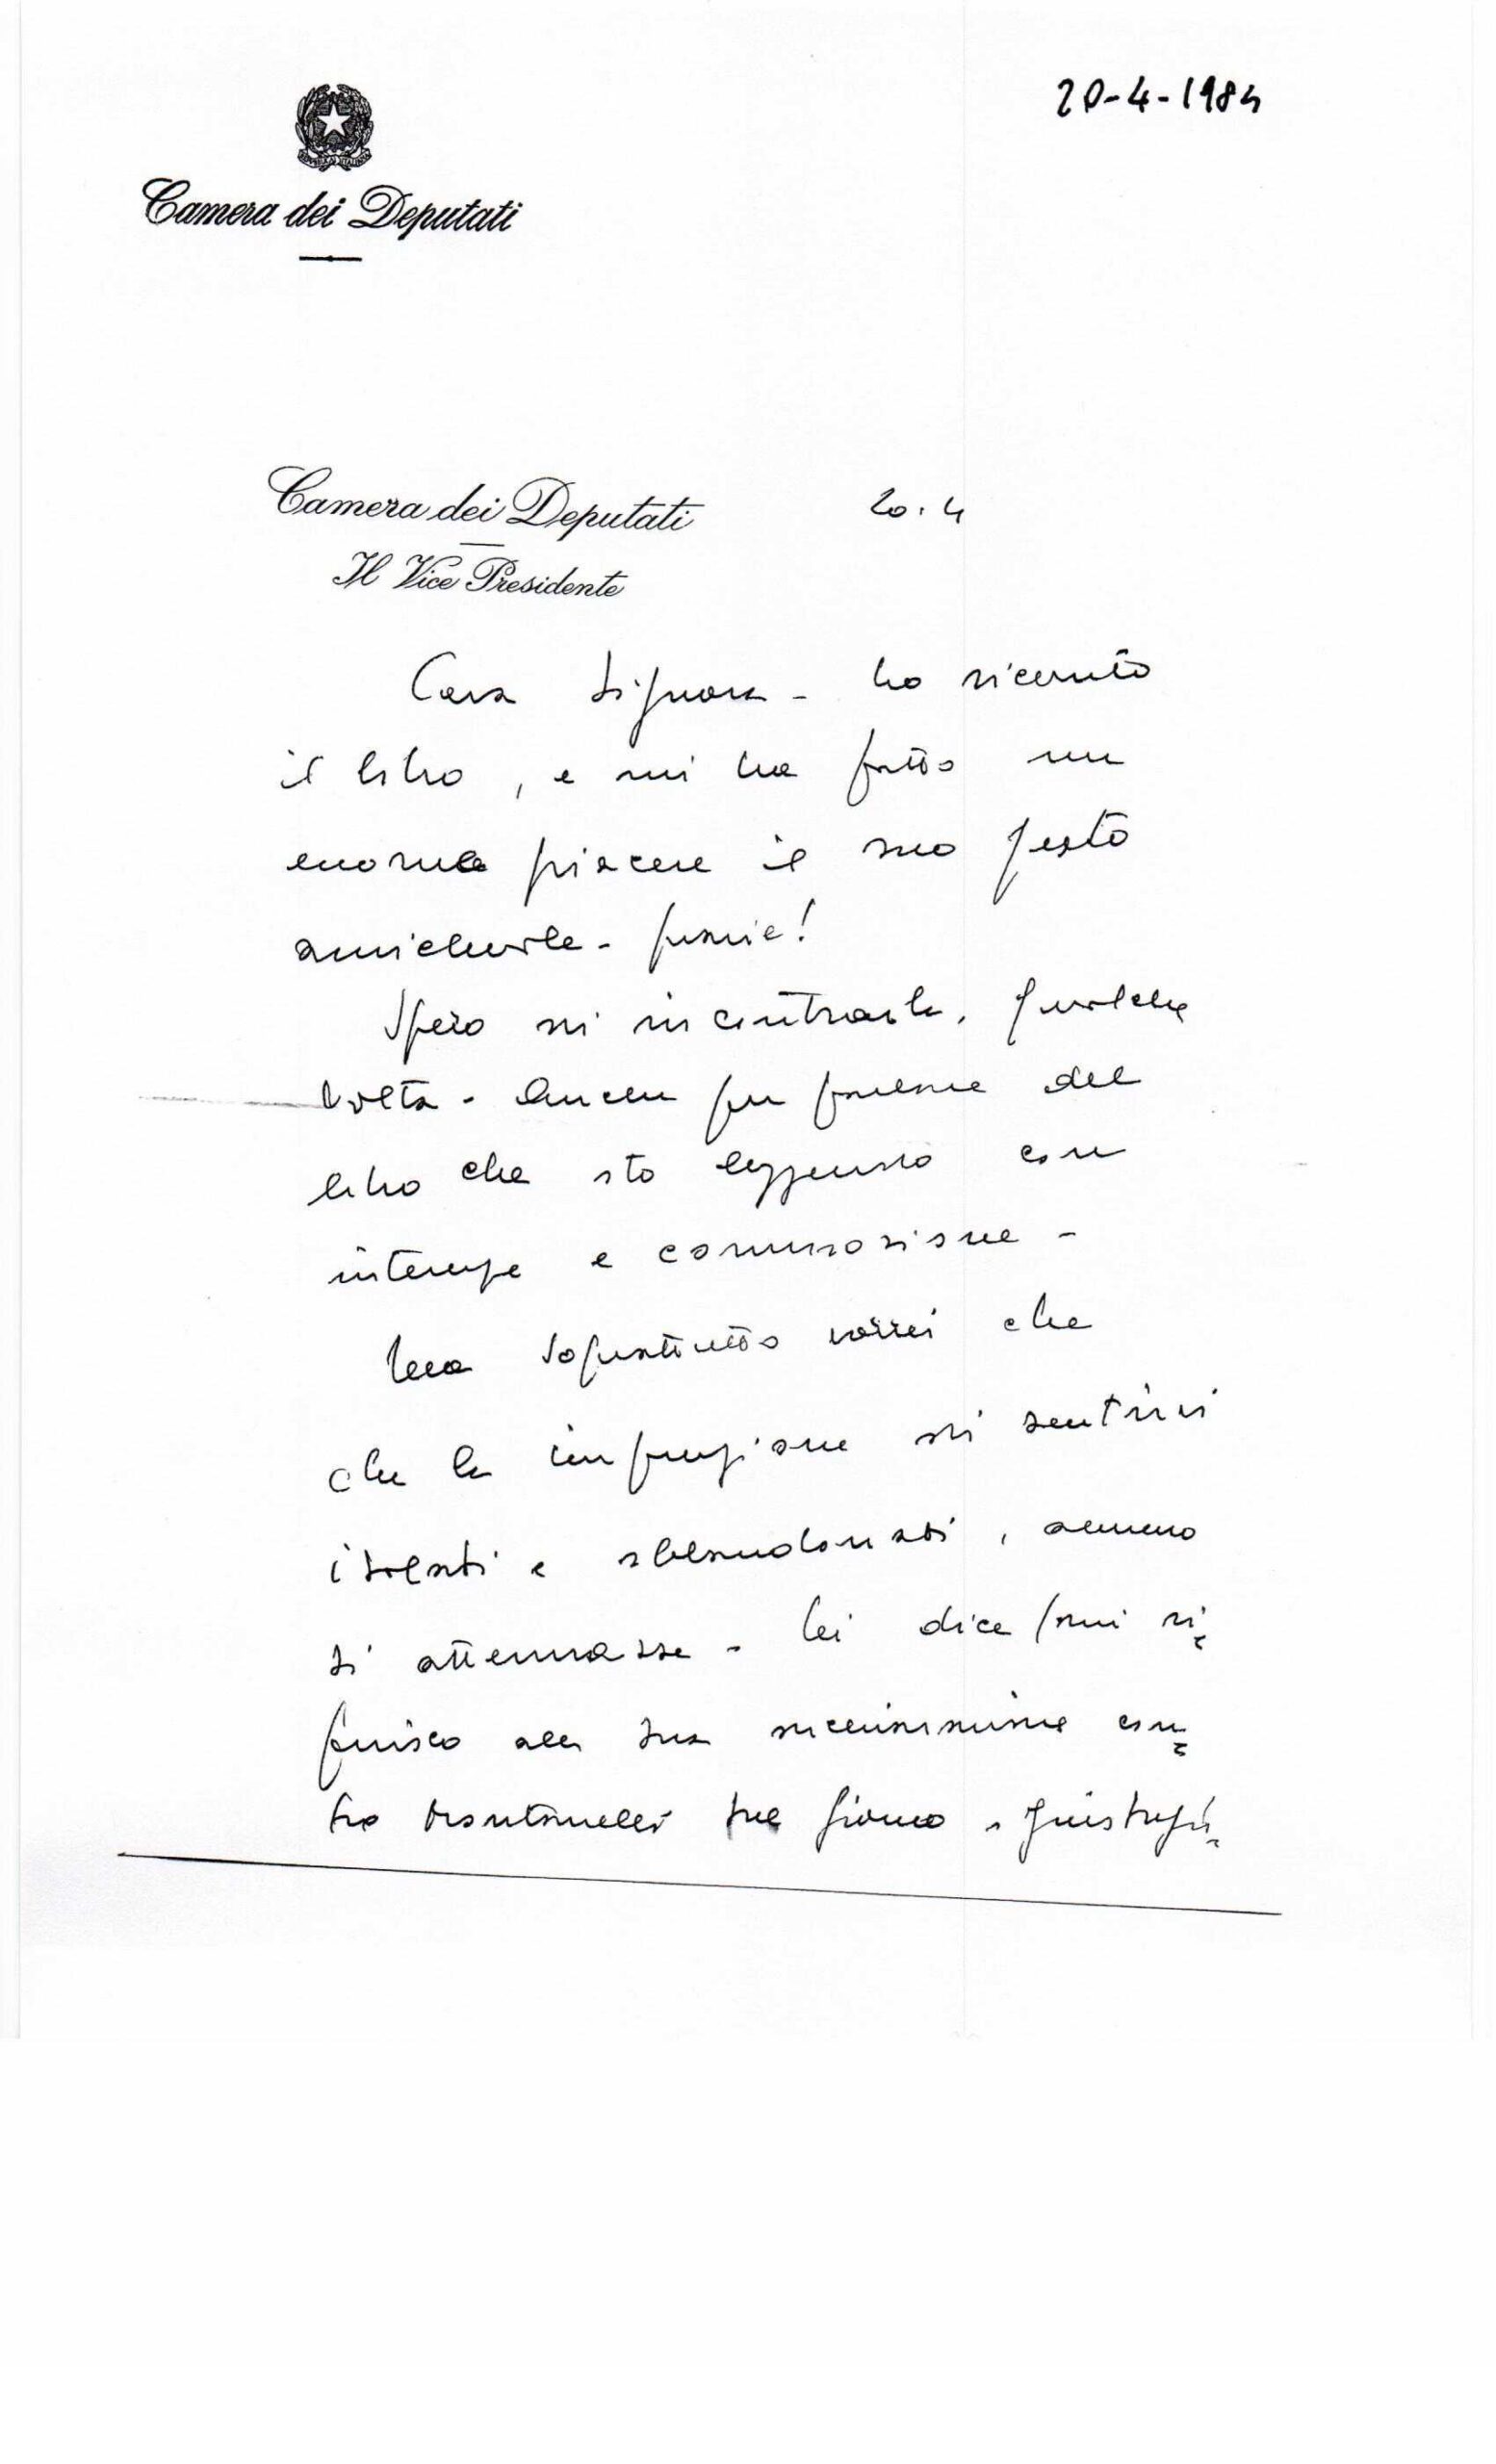 20-4-1984
Camera dei Deputati
Camera dei Deputati
20.4
Il Vice Presidente
Cara Signora - ho ricevuto
il libro, e mi ha fatto un
enorme piacere il suo gesto
amichevole - grazie!
Spero di incontrarla, qualche
volta - Anche per parlare del
libro che sto leggendo con
interesse e commozione -
Ma soprattutto vorrei che
che la impressione di sentirvi
isolati e abbandonati, almeno
si attenuasse - Lei dice (mi ri=
ferisco alla sua con=
tro Montanelli sul Giorno